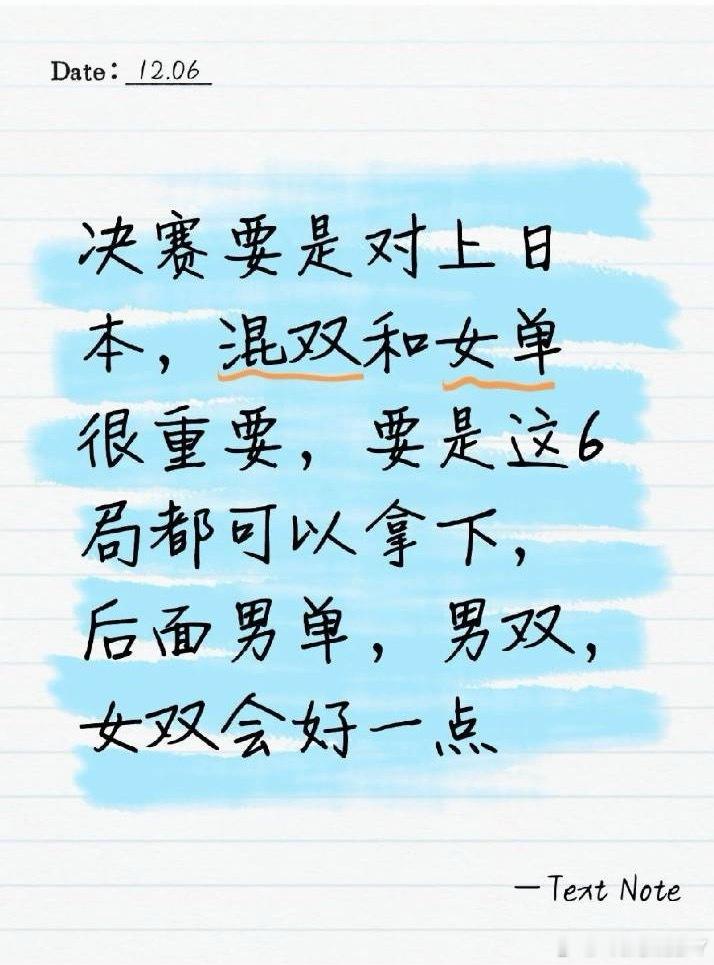 Date: 12.06
决赛要是对上日
本，混双和女单
很重要，要是这6
局都可以拿下，
后面男单，男双，
女双会好一点
—Text Note